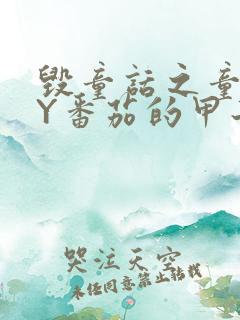 毁童话之童
Y番茄的甲
哭泣天空
未经同意禁止转载